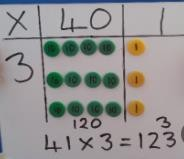 X 40 1
10 10 10 10 1
3
10 10 10 10 1
10 10 10 10 1
120 3
41 x 3 = 123